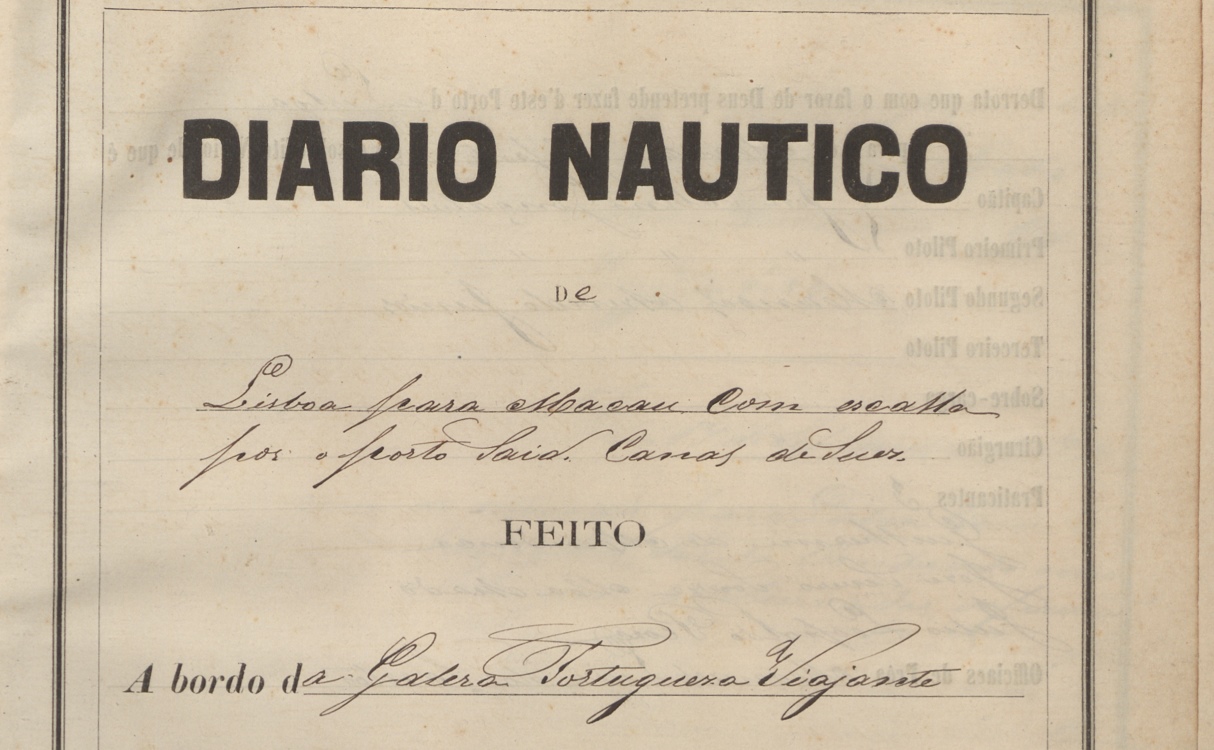 DIARIO NAUTICO
De
Lisboa para Macau Com escalla
por o porto Said. Canal de Suez.
FEITO
A bordo da Galera Portugueza Viajante